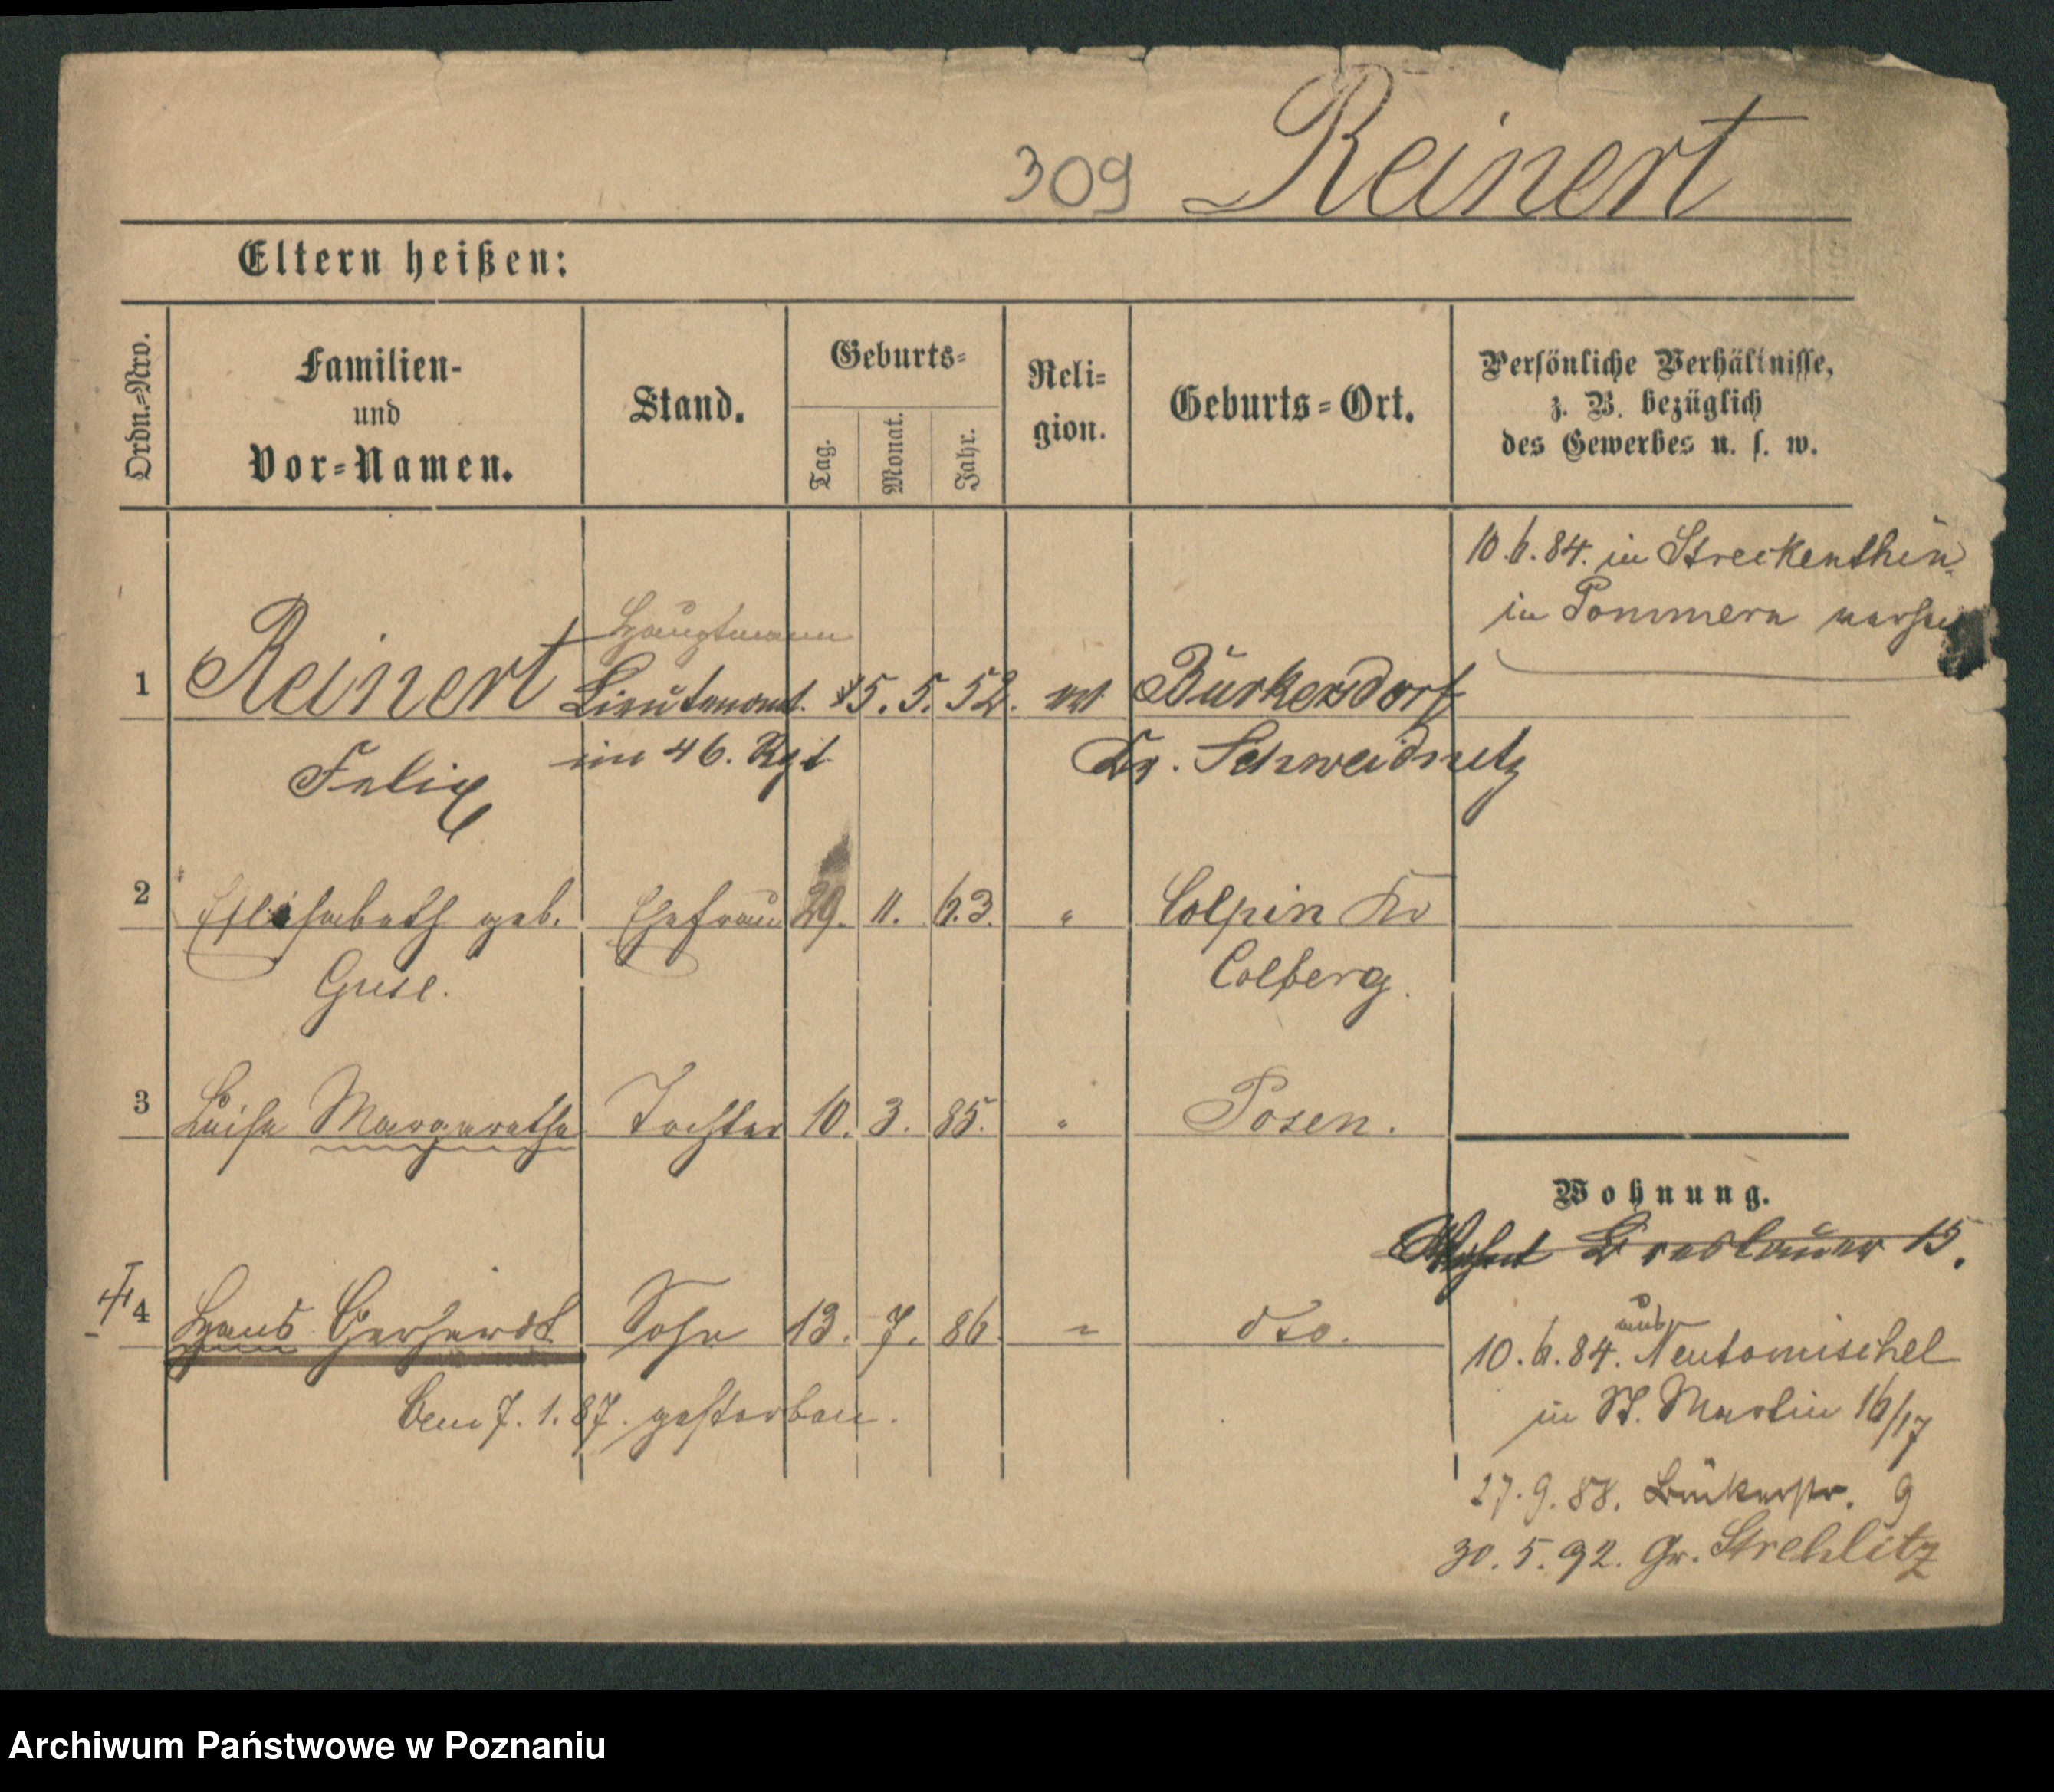 309 Reinert
Eltern heißen:
Ordn.-Nro.
Familien-
und
Vor-Namen.
Stand.
Geburts-
Tag.
Monat.
Jahr.
Reli-
gion.
Geburts-Ort.
Persönliche Verhältnisse,
z. B. bezüglich
des Gewerbes u. s. w.
10.6.84. in Streckenthin
in Pommern
Hauptmann
1 Reinert Lieutenant. 15. 5. 52. Burkersdorf
Felix im 46. Rgt Kr. Schweidnitz
2 Elisabeth geb. Ehefrau 29. 11. 63. " Colpin Kr
Guse. Colberg.
3 Luise Margarethe Tochter 10. 3. 85. " Posen.
Wohnung.
Breslauer 15.
4 Hans Gerhardt Sohn 13. 7. 86. " dto.
aus
10.6.84. Neutomischel
den 7.1.87. gestorben.
in St. Martin 16/17
27.9.88. Bäckerstr. 9
30.5.92. Gr. Strehlitz
Archiwum Państwowe w Poznaniu